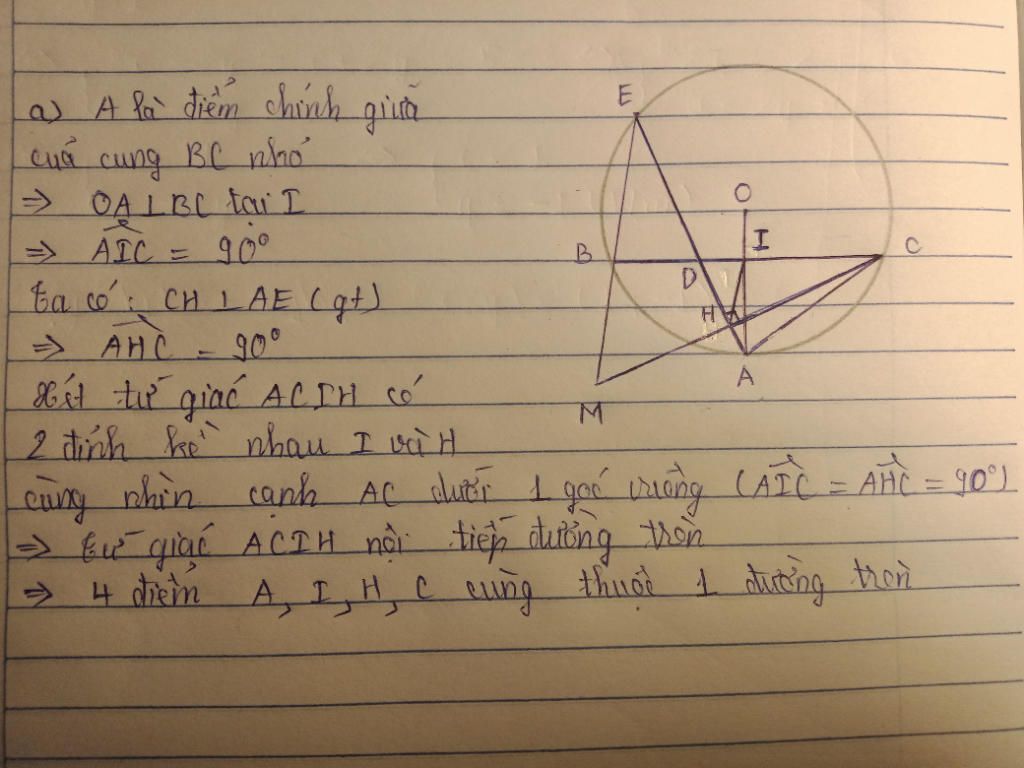 a) A là điểm chính giữa
của cung BC nhỏ
⇒ OA ⊥ BC tại I
⇒ AIC = 90°
Ta có: CH ⊥ AE (gt)
⇒ AHC = 90°
Xét tứ giác ACIH có
2 đỉnh kề nhau I và H
cùng nhìn cạnh AC dưới 1 góc vuông (AIC = AHC = 90°)
⇒ tứ giác ACIH nội tiếp đường tròn
⇒ 4 điểm A, I, H, C cùng thuộc 1 đường tròn
E
O
B
I
C
D
H
A
M